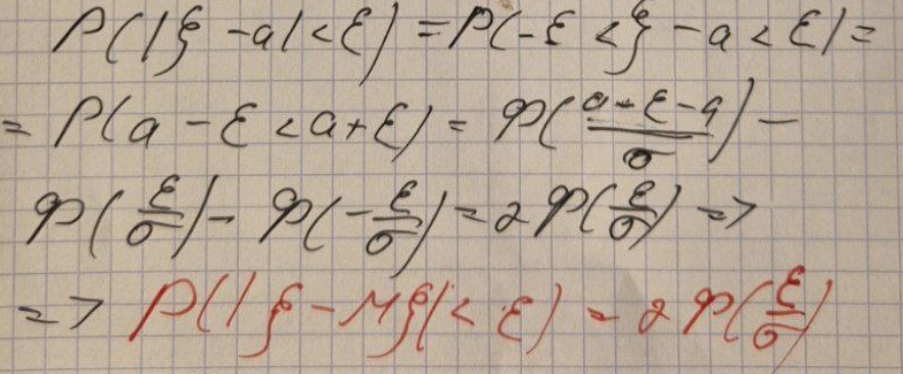 P(|ξ - a| < ε) = P(-ε < ξ - a < ε) =
= P(a - ε < a + ε) = Φ(\frac{a - ε - a}{σ}) -
Φ(\frac{ε}{σ}) - Φ(-\frac{ε}{σ}) = 2Φ(\frac{ε}{σ}) =>
=> P(|ξ - Mξ| < ε) = 2Φ(\frac{ε}{σ})